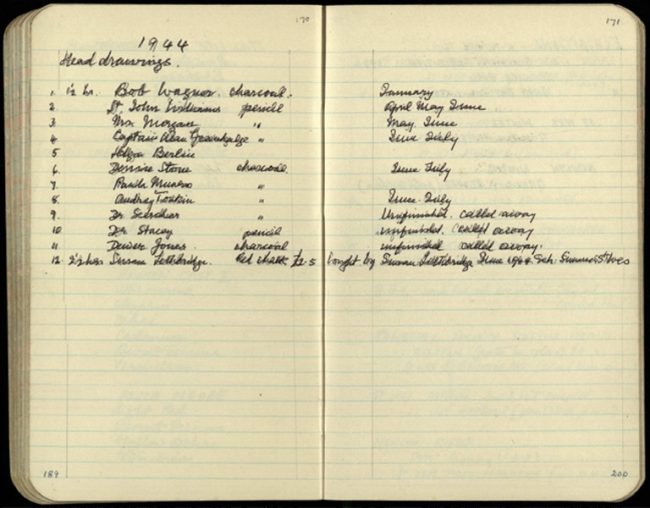 170
171
1944
Head drawings.
1. 1½ hr. Bob Wagner charcoal. January
2 St. John Williams pencil April May June
3 Mrs. Morgan " May, June
4 Captain Alan " June July
5 Helga Berlin
6. Denise Stone charcoal June July
7. Munro "
8. Audrey " June July
9. Dr. " Unfinished. called away
10 Dr. Stacey pencil unfinished. called away
11 Jones charcoal unfinished called away.
12 2½ hrs Susan Lethbridge. Red chalk. £2.5 bought by Susan Lethbridge June 1964 Exh. Summer St Ives
189
200